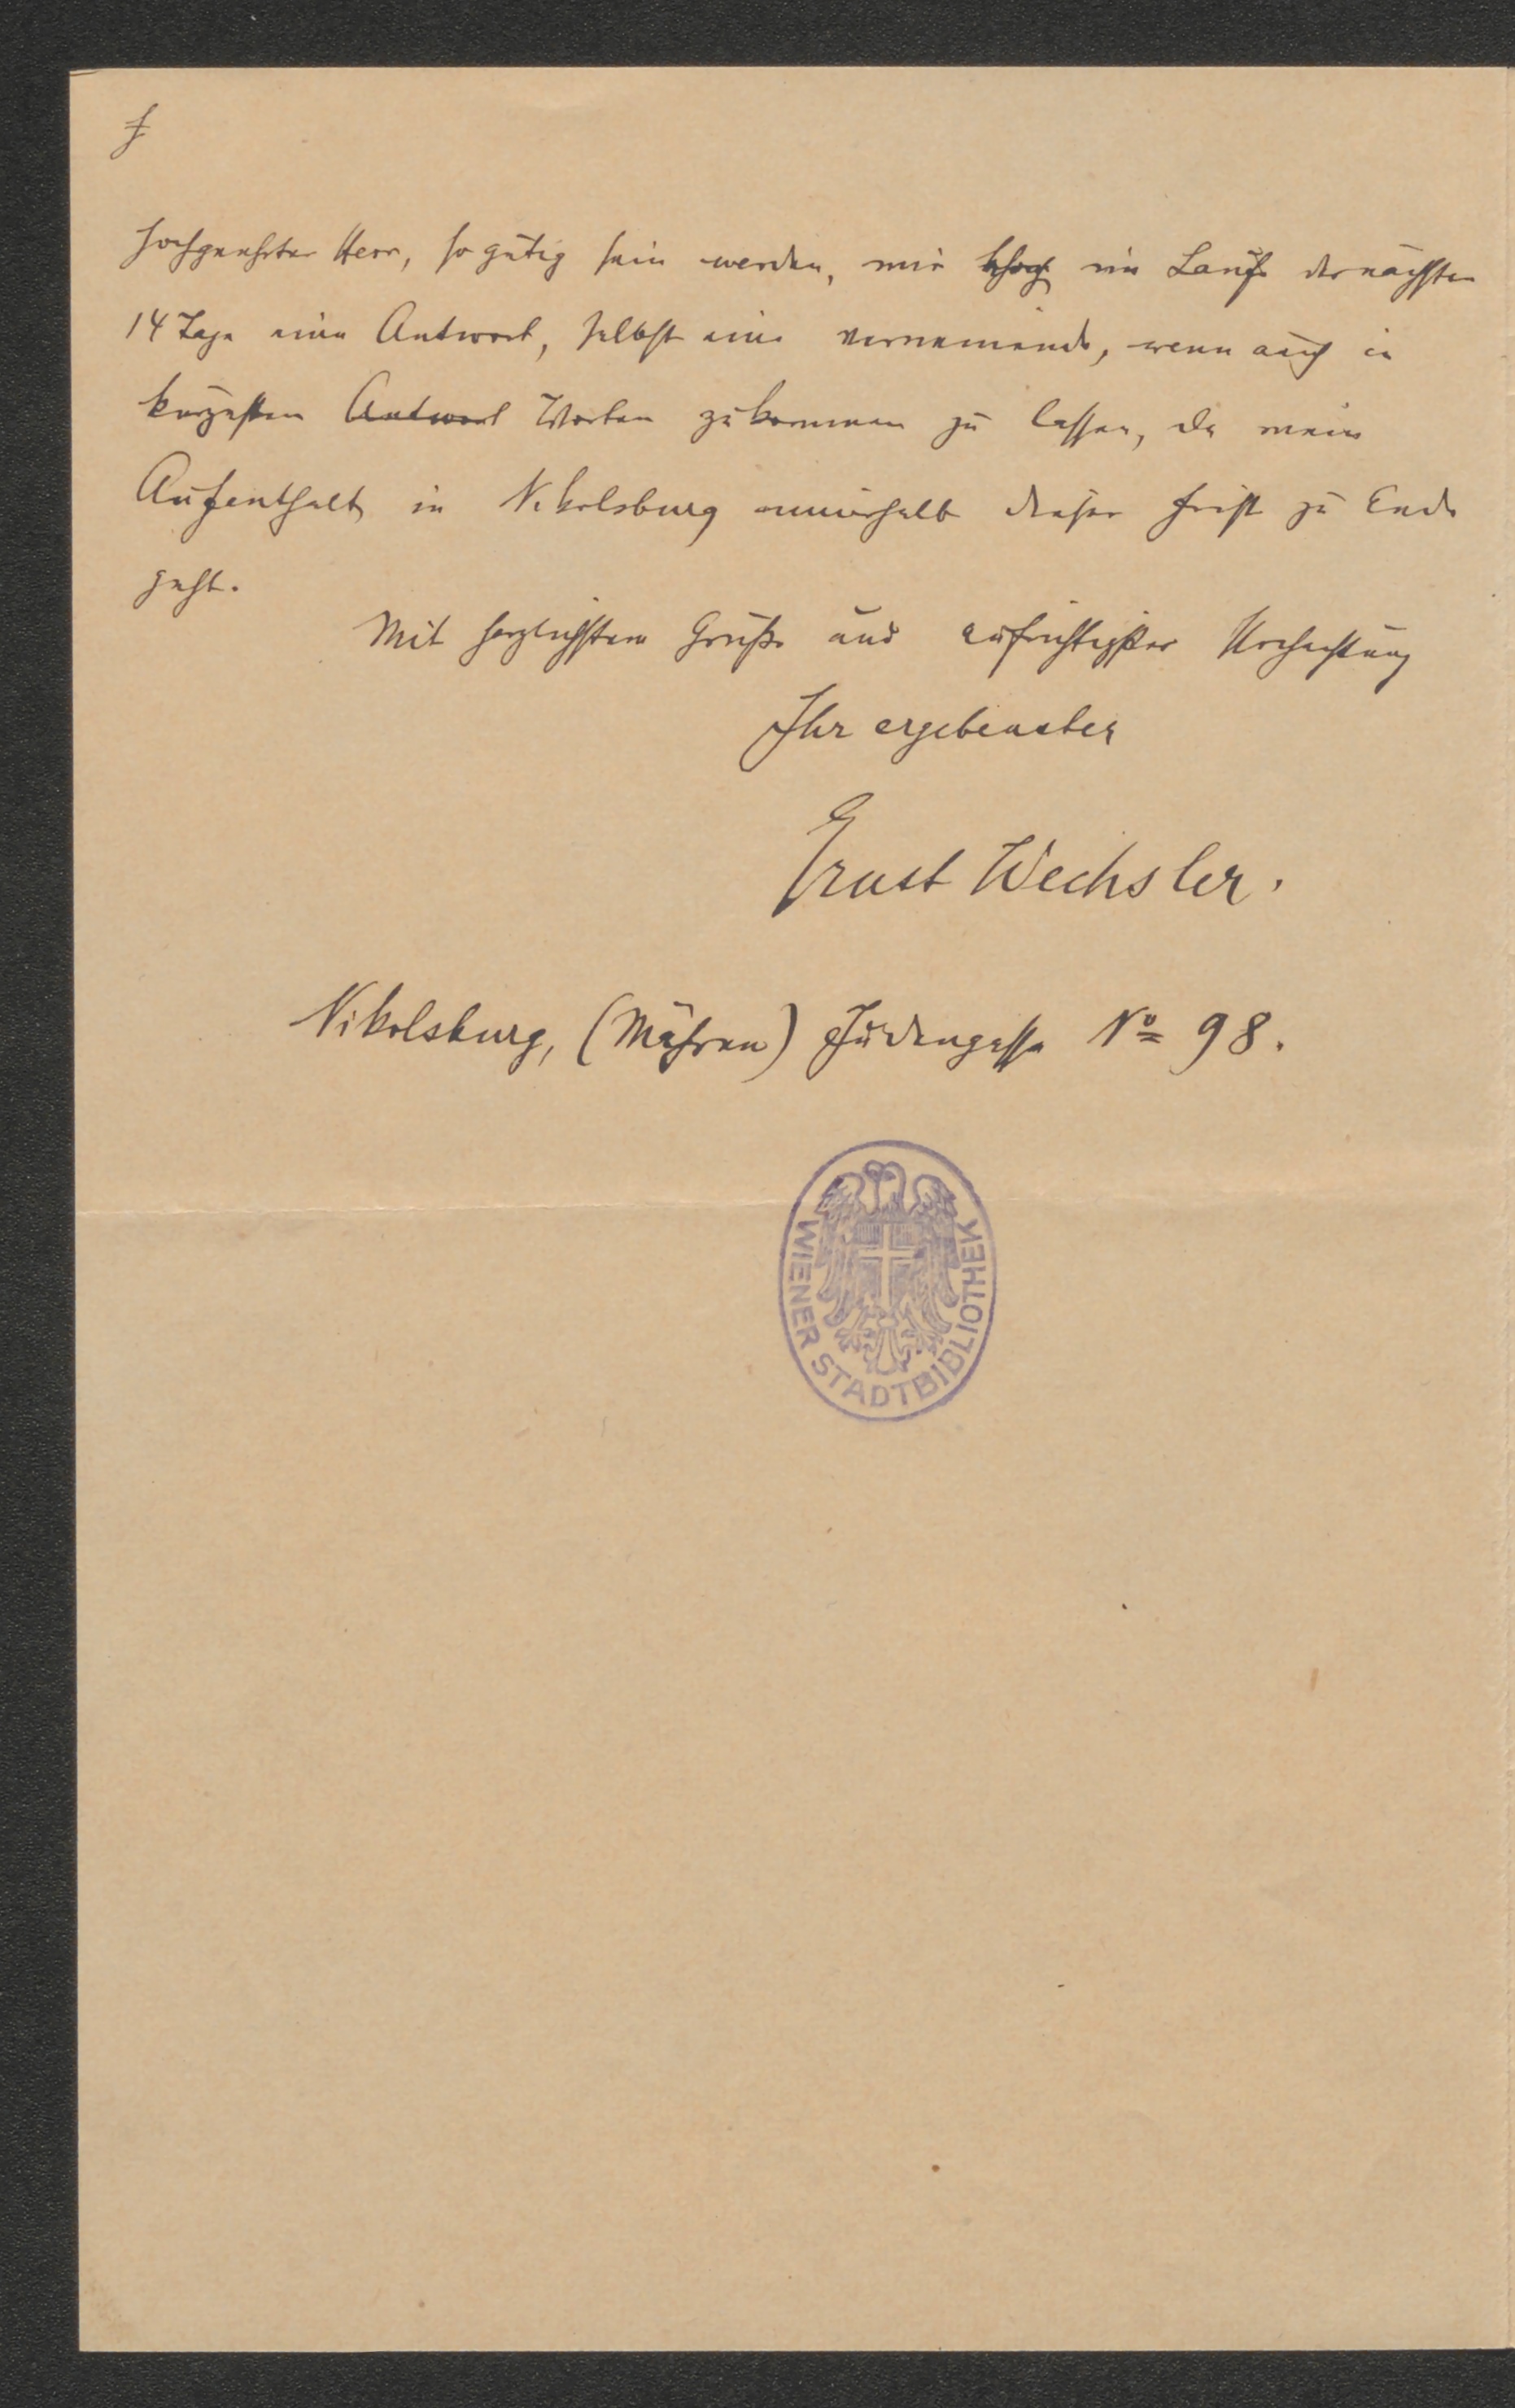 hochgeehrter Herr, so gütig sein werden, mir im Laufe der nächsten
14 Tage eine Antwort, selbst eine verneinende, wenn auch in
kürzesten Antwort Worten zukommen zu lassen, da mein
Aufenthalt in Nikolsburg innerhalb dieser Frist zu Ende
geht.
Mit herzlichstem Gruße und aufrichtigster Hochachtung
Ihr ergebenster
Ernst Wechsler.
Nikolsburg, (Mähren) Judengasse No 98.
WIENER STADTBIBLIOTHEK